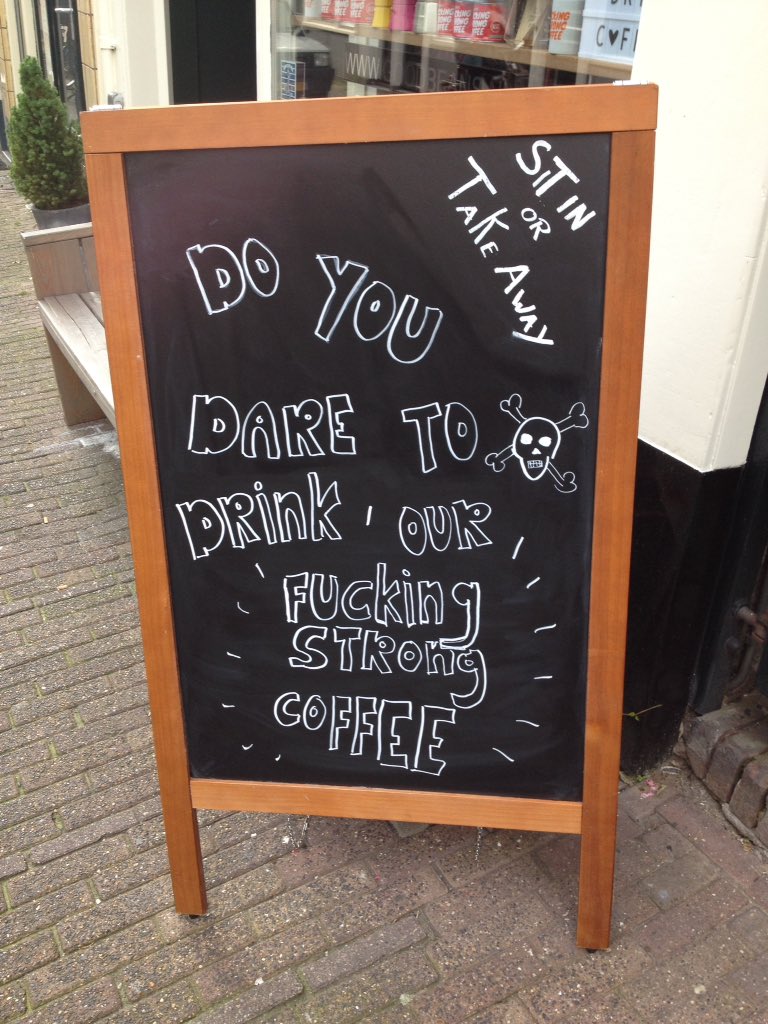 SIT IN
OR
TAKE AWAY
DO YOU
DARE TO
DRINK OUR
FUCKing
STRong
COFFEE